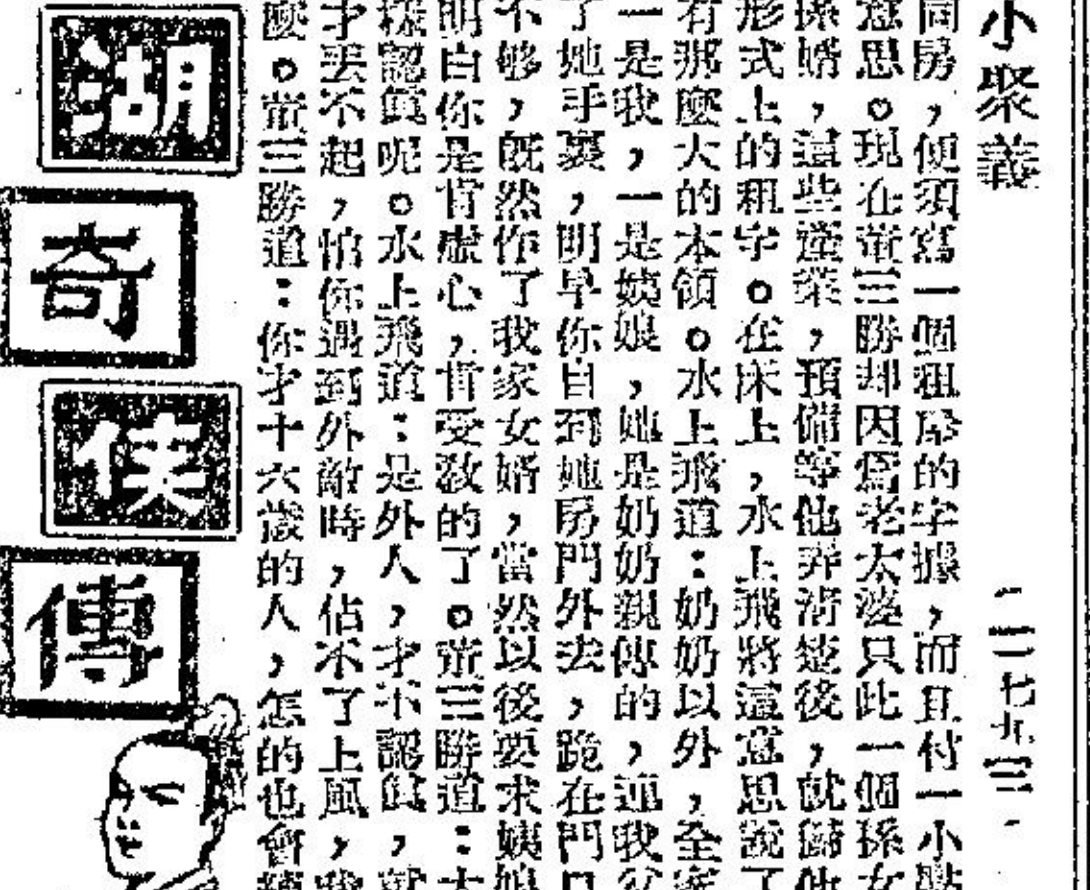 小聚義
二一七九三
同房，便須寫一個租房的字據，而且付一小
意思。現在董三勝却因爲老太婆只此一個孫女
孫婿，這些產業，預備等他弄清楚後，就歸他
形式上的租字。在床上，水上飛將這意思說了
有那麼大的本領。水上飛道：奶奶以外，全家
一是我，一是姨娘，她是奶奶親傳的，連我父
了她手裏，明早你自到她房門外去，跪在門口
不够，旣然作了我家女婿，當然以後要求姨娘
明白你是肯虛心，肯受敎的了。董三勝道：大
樣認眞呢。水上飛道：是外人，才不認眞，就
才丟不起，怕你遇到外敵時，佔不了上風，我
麼。董三勝道：你才十六歲的人，怎的也會
湖
奇
俠
傳